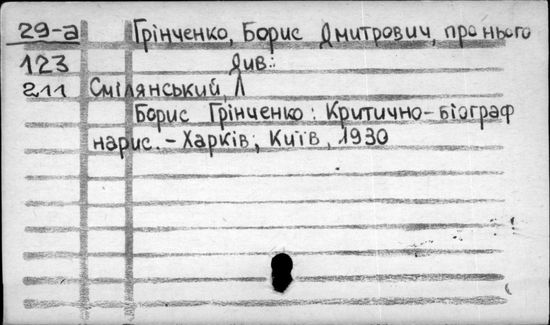 29-а Грінченко, Борис Дмитрович, про нього
123 див.:
211 Смілянський, Л
Борис Грінченко: Критично-біограф
нарис. - Харків; Київ, 1930